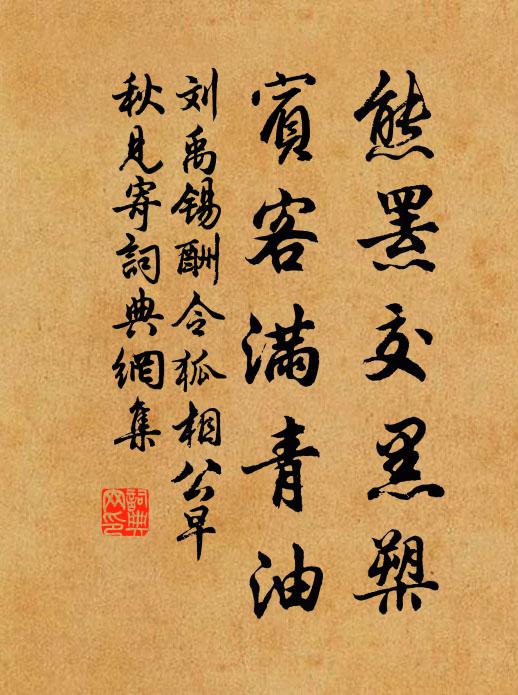 熊罴交黑槊
賓客满青油
刘禹锡酬令狐相公早
秋見寄詞典網集
詞典网印